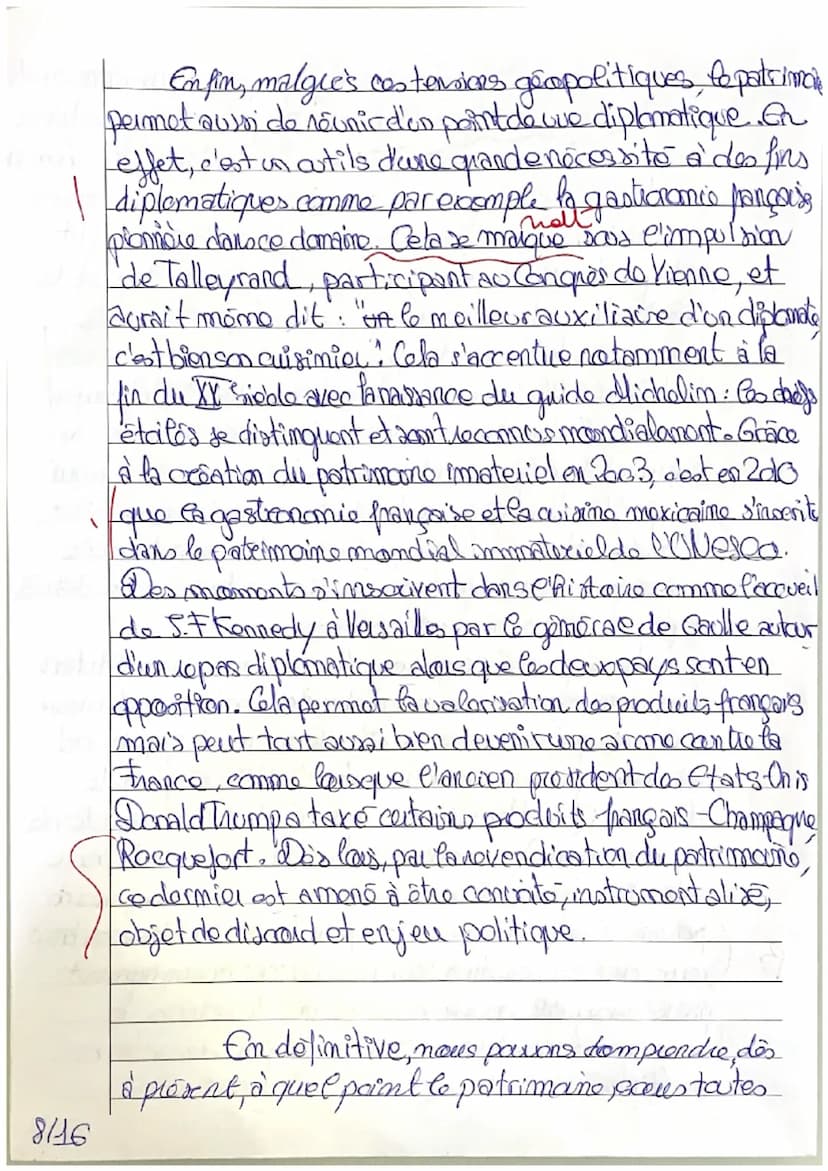 Enfin, malgrés ces tensions géopolitiques, le patrimoi
permet aussi de réunir d'un point de vue diplomatique. En
effet, c'est un outils d'une grande nécessité à des fins
diplomatiques comme par exemple la gastronomie français
pionnière dans ce domaine. Cela se marque sous l'impulsion
de Talleyrand, participant au Congrès de Vienne, et
aurait même dit : "le meilleur auxiliaire d'un diplomate,
c'est bien son cuisinier". Cela s'accentue notamment à la
fin du XX siècle avec la naissance du guide Michelin : les chefs
étoilés se distinguent et sont reconnus mondialement. Grâce
à la création du patrimoine immatériel en 2003, c'est en 2010
que la gastronomie française et la cuisine mexicaine s'inscrit
dans le patrimoine mondial immatériel de l'UNesco.
Des moments s'inscrivent dans l'Histoire comme l'accueil
de J.F Kennedy à Versailles par le général de Gaulle autour
d'un repas diplomatique alors que les deux pays sont en
opposition. Cela permet la valorisation des produits français
mais peut tout aussi bien devenir une arme contre la
France, comme lorsque l'ancien président des Etats-Unis
Donald Trump a taxé certains produits français - Champagne,
Rocquefort. Dès lors, par la revendication du patrimoine,
ce dernier est amené à être convoité, instrumentalisé,
objet de discord et enjeu politique.
En définitive, nous pouvons comprendre, dès
à présent, à quel point le patrimoine sous toutes
8/16